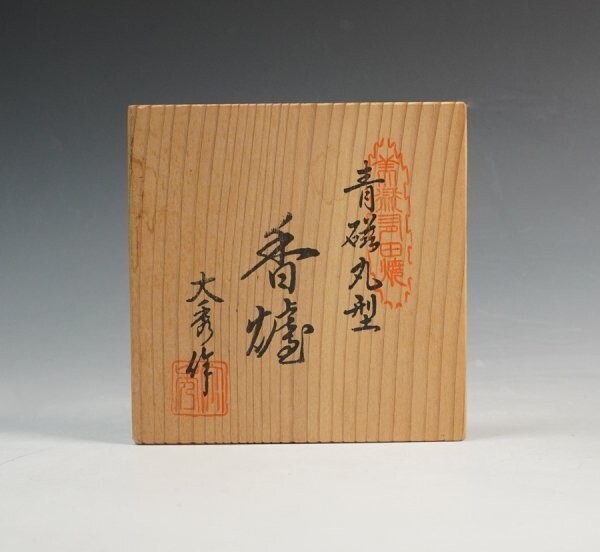 青磁丸型
香爐
大秀作